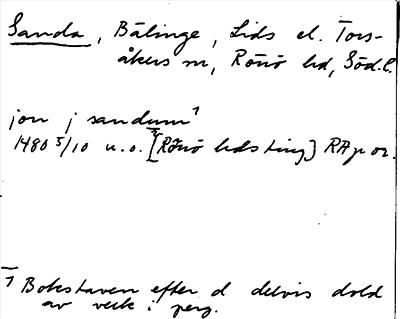 Sanda, Bälinge, Lids el. Tors-
åkers sn, Rönö hd, Söd.l.
jon j sandum 1
1480 5/10 u.o. [Rönö hds ting] RAp or.
1 Bokstaven efter d delvis dold
av veck i perg.